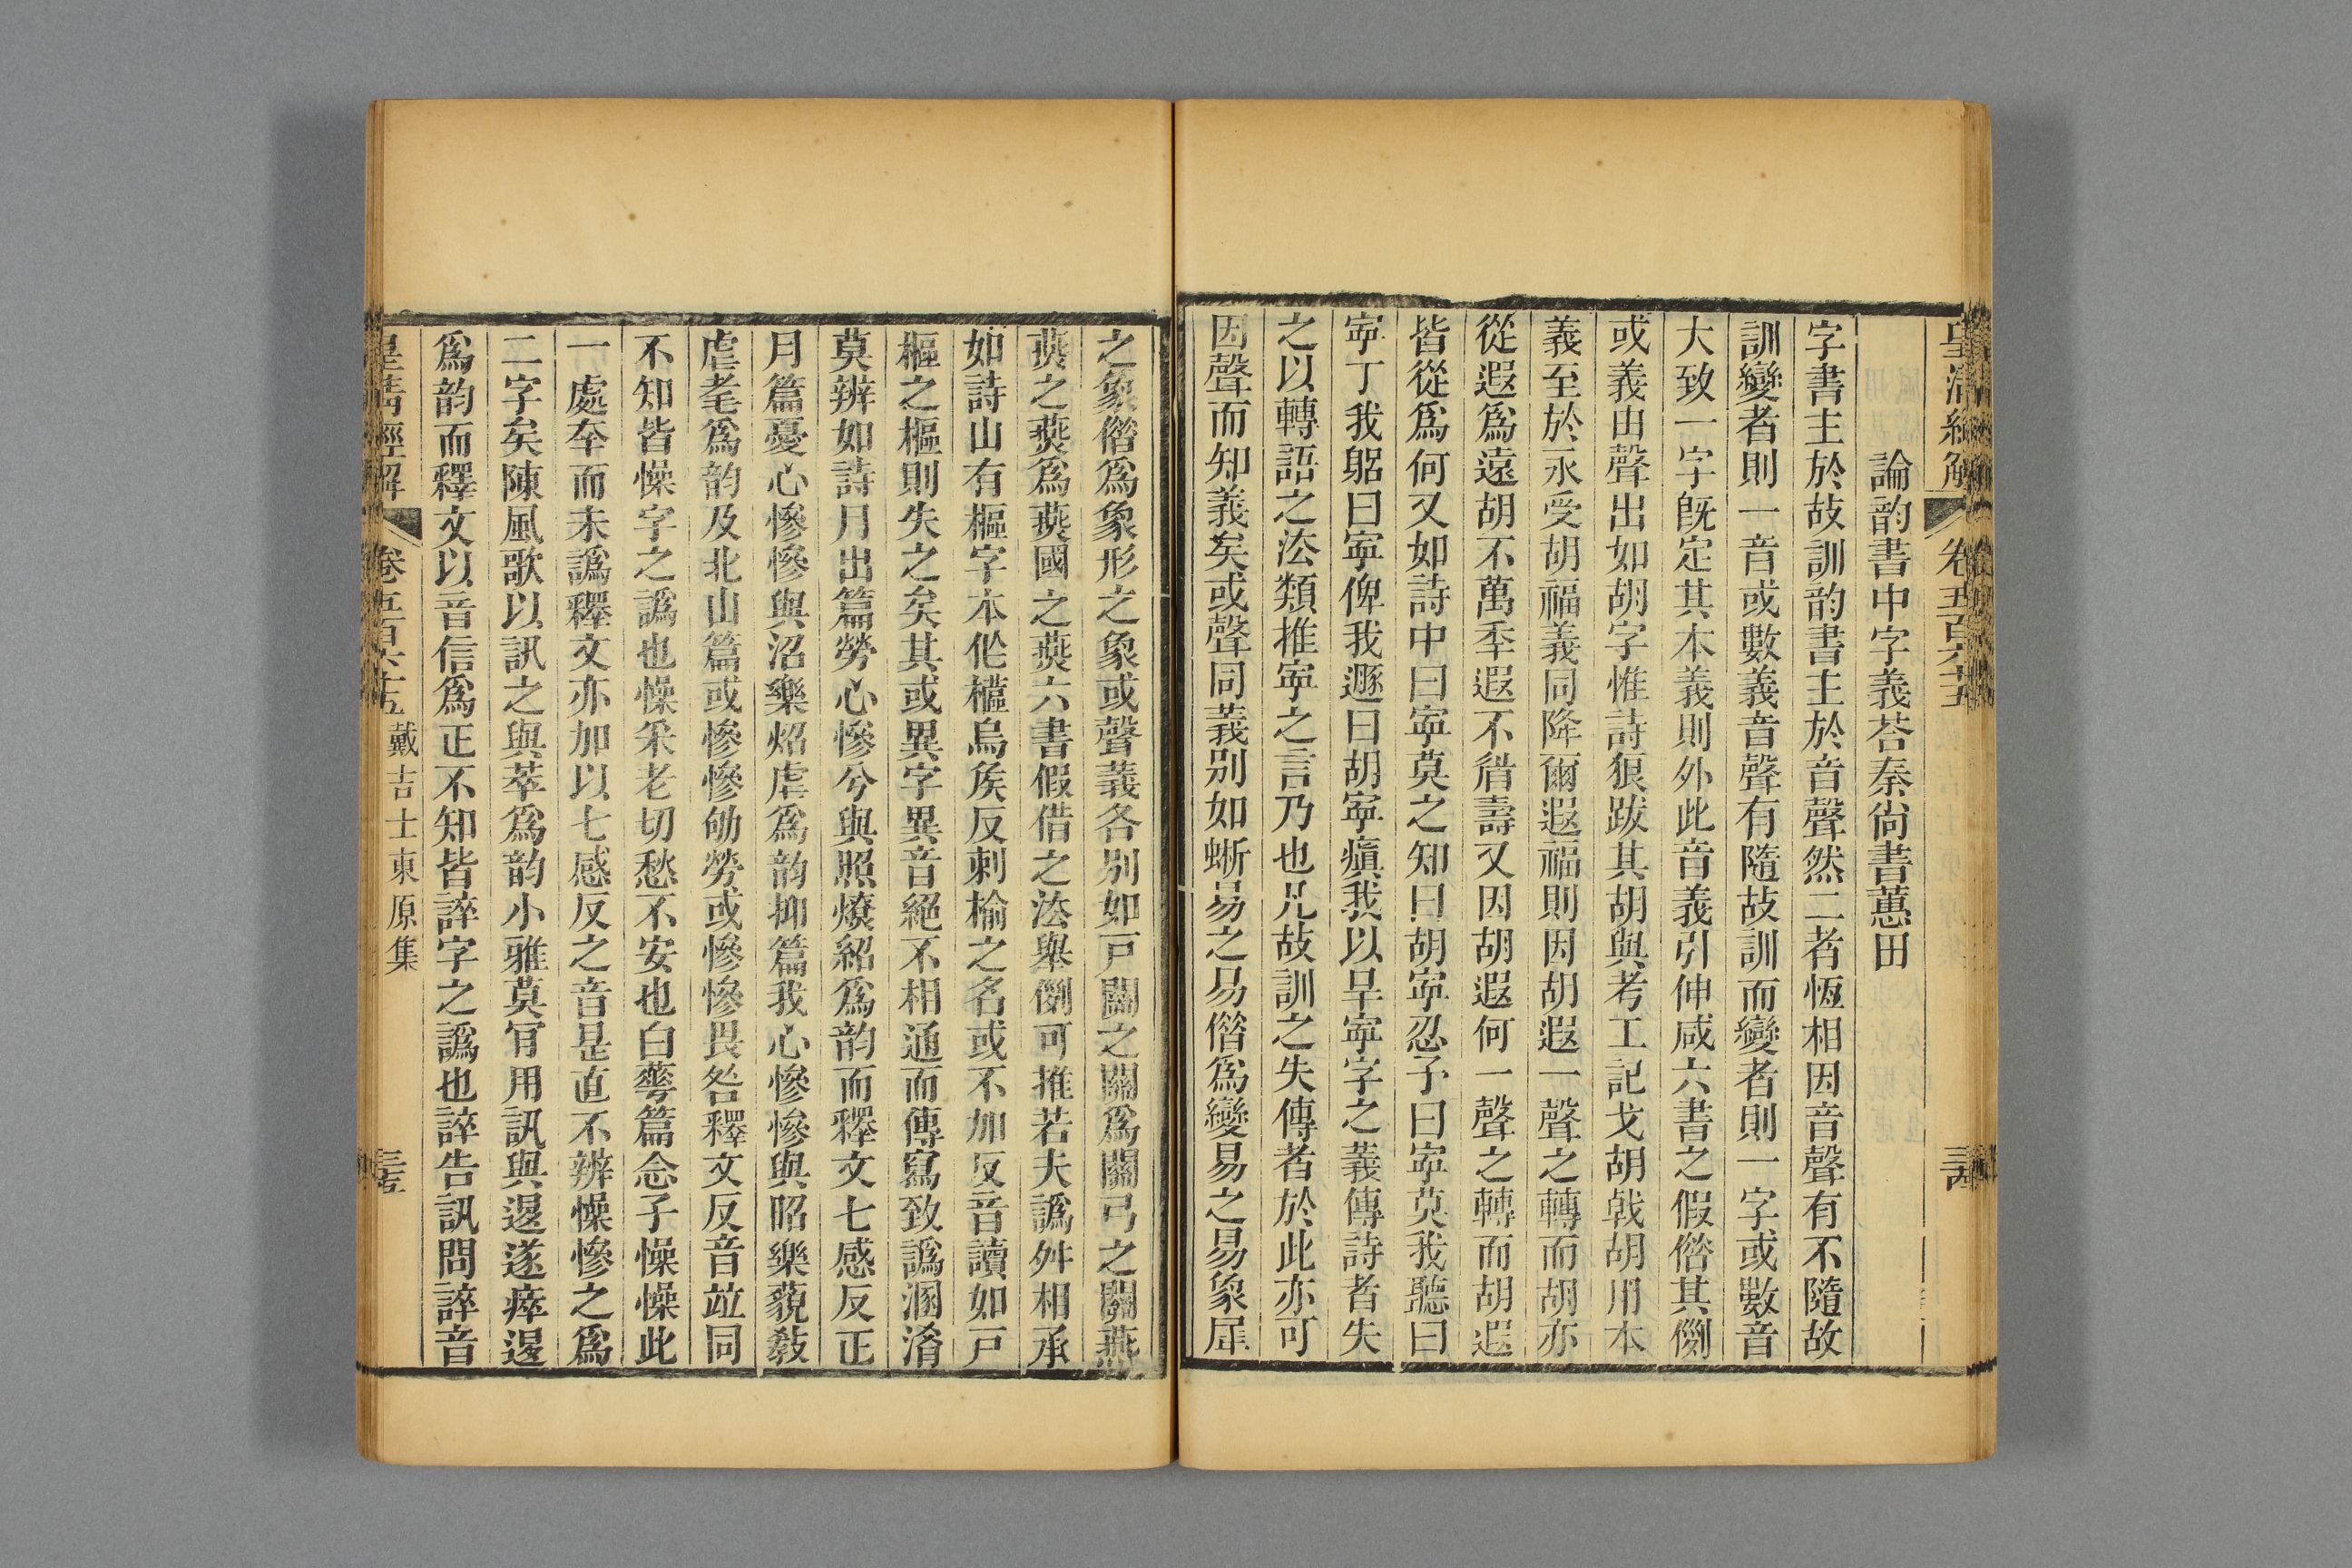 皇清經解 卷五百六十五 三十四
論韵書中字義荅秦尙書蕙田
字書主於故訓韵書主於音聲然二者恆相因音聲有不隨故
訓變者則一音或數義音聲有隨故訓而變者則一字或數音
大致一字旣定其本義則外此音義引伸咸六書之假借其例
或義由聲出如胡字惟詩狼跋其胡與考工記戈胡戟胡用本
義至於永受胡福義同降爾遐福則因胡遐一聲之轉而胡亦
從遐爲遠胡不萬秊遐不眉壽又因胡遐何一聲之轉而胡遐
皆從爲何又如詩中曰寧莫之知曰胡寧忍予曰寧莫我聽曰
寧丁我躬曰寧俾我遯曰胡寧瘨我以旱寧字之義傳詩者失
之以轉語之法類推寧之言乃也凡故訓之失傳者於此亦可
因聲而知義矣或聲同義別如蜥易之易借爲變易之易象犀
之象借爲象形之象或聲義各別如戸關之關爲關弓之關燕
燕之燕爲燕國之燕六書假借之法舉例可推若夫譌舛相承
如詩山有樞字本作櫙烏矦反刺楡之名或不加反音讀如戸
樞之樞則失之矣其或異字異音絕不相通而傳寫致譌溷淆
莫辨如詩月出篇勞心慘兮與照燎紹爲韵而釋文七感反正
月篇憂心慘慘與沼樂炤虐爲韵抑篇我心慘慘與昭樂藐敎
虐耄爲韵及北山篇或慘慘劬勞或慘慘畏咎釋文反音竝同
不知皆懆字之譌也懆采老切愁不安也白華篇念子懆懆此
一處夲而未譌釋文亦加以七感反之音是直不辨懆慘之爲
二字矣陳風歌以訊之與萃爲韵小雅莫肯用訊與退遂瘁退
爲韵而釋文以音信爲正不知皆誶字之譌也誶告訊問誶音
皇清經解 卷五百六十五 戴吉士東原集 三十五